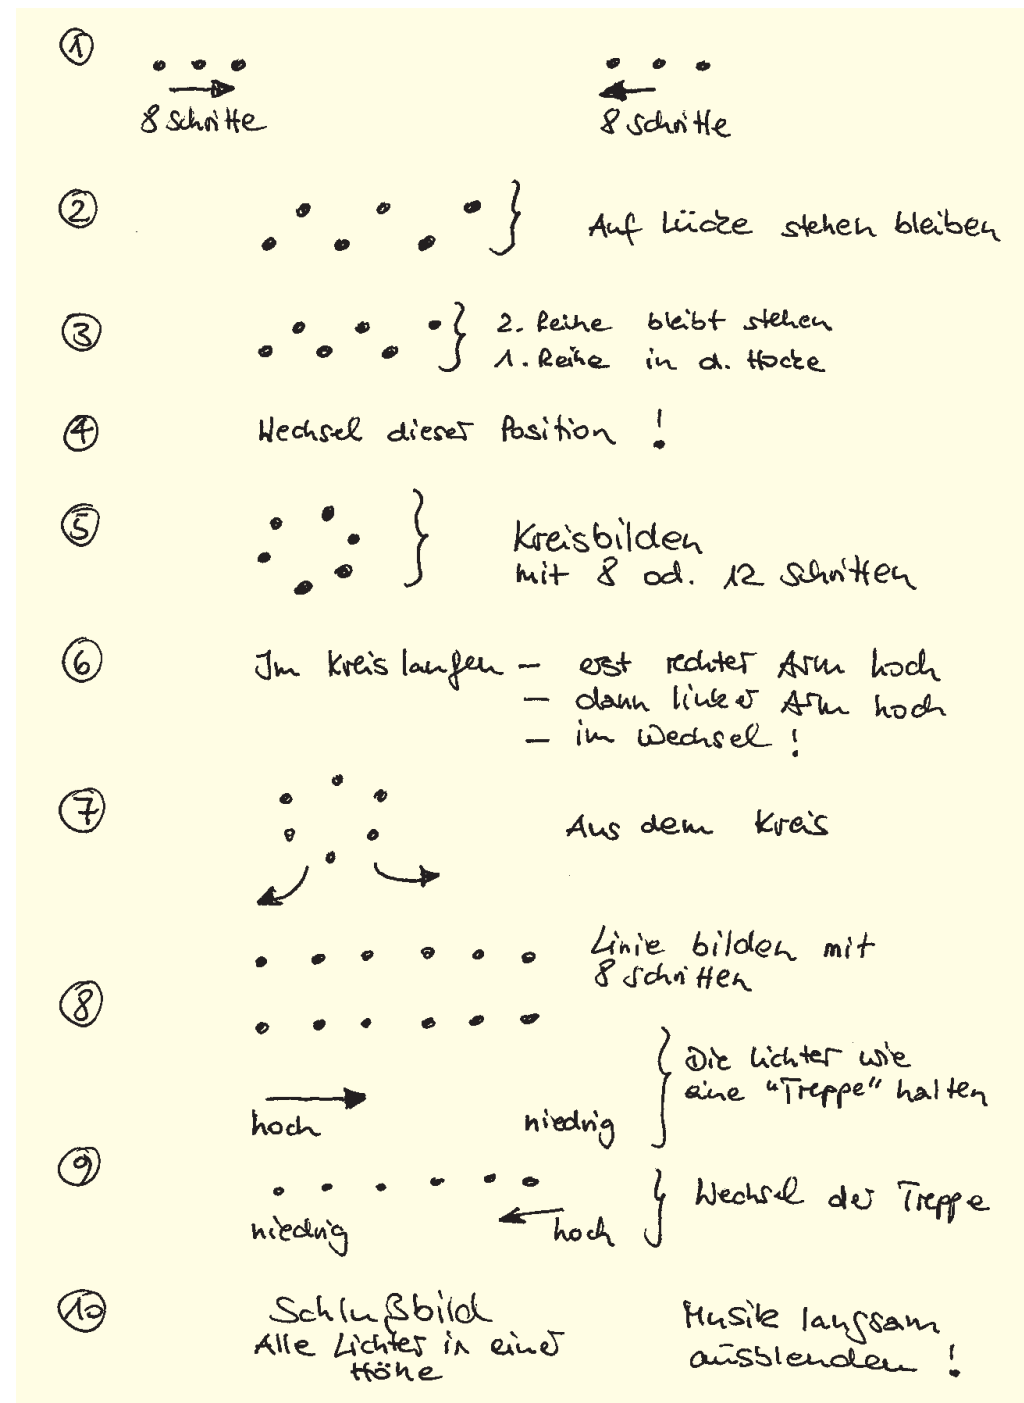 1
8 Schritte 8 Schritte
2 Auf Lücke stehen bleiben
3 2. Reihe bleibt stehen
1. Reihe in d. Hocke
4 Wechsel dieser Position !
5 Kreisbilden
mit 8 od. 12 Schritten
6 Im Kreis laufen - erst rechter Arm hoch
- dann linker Arm hoch
- im Wechsel !
7 Aus dem Kreis
Linie bilden mit
8 Schritten
8
Die Lichter wie
eine "Treppe" halten
hoch niedrig
9 Wechsel der Treppe
niedrig hoch
10 Schlußbild Musik langsam
Alle Lichter in einer ausblenden !
Höhe